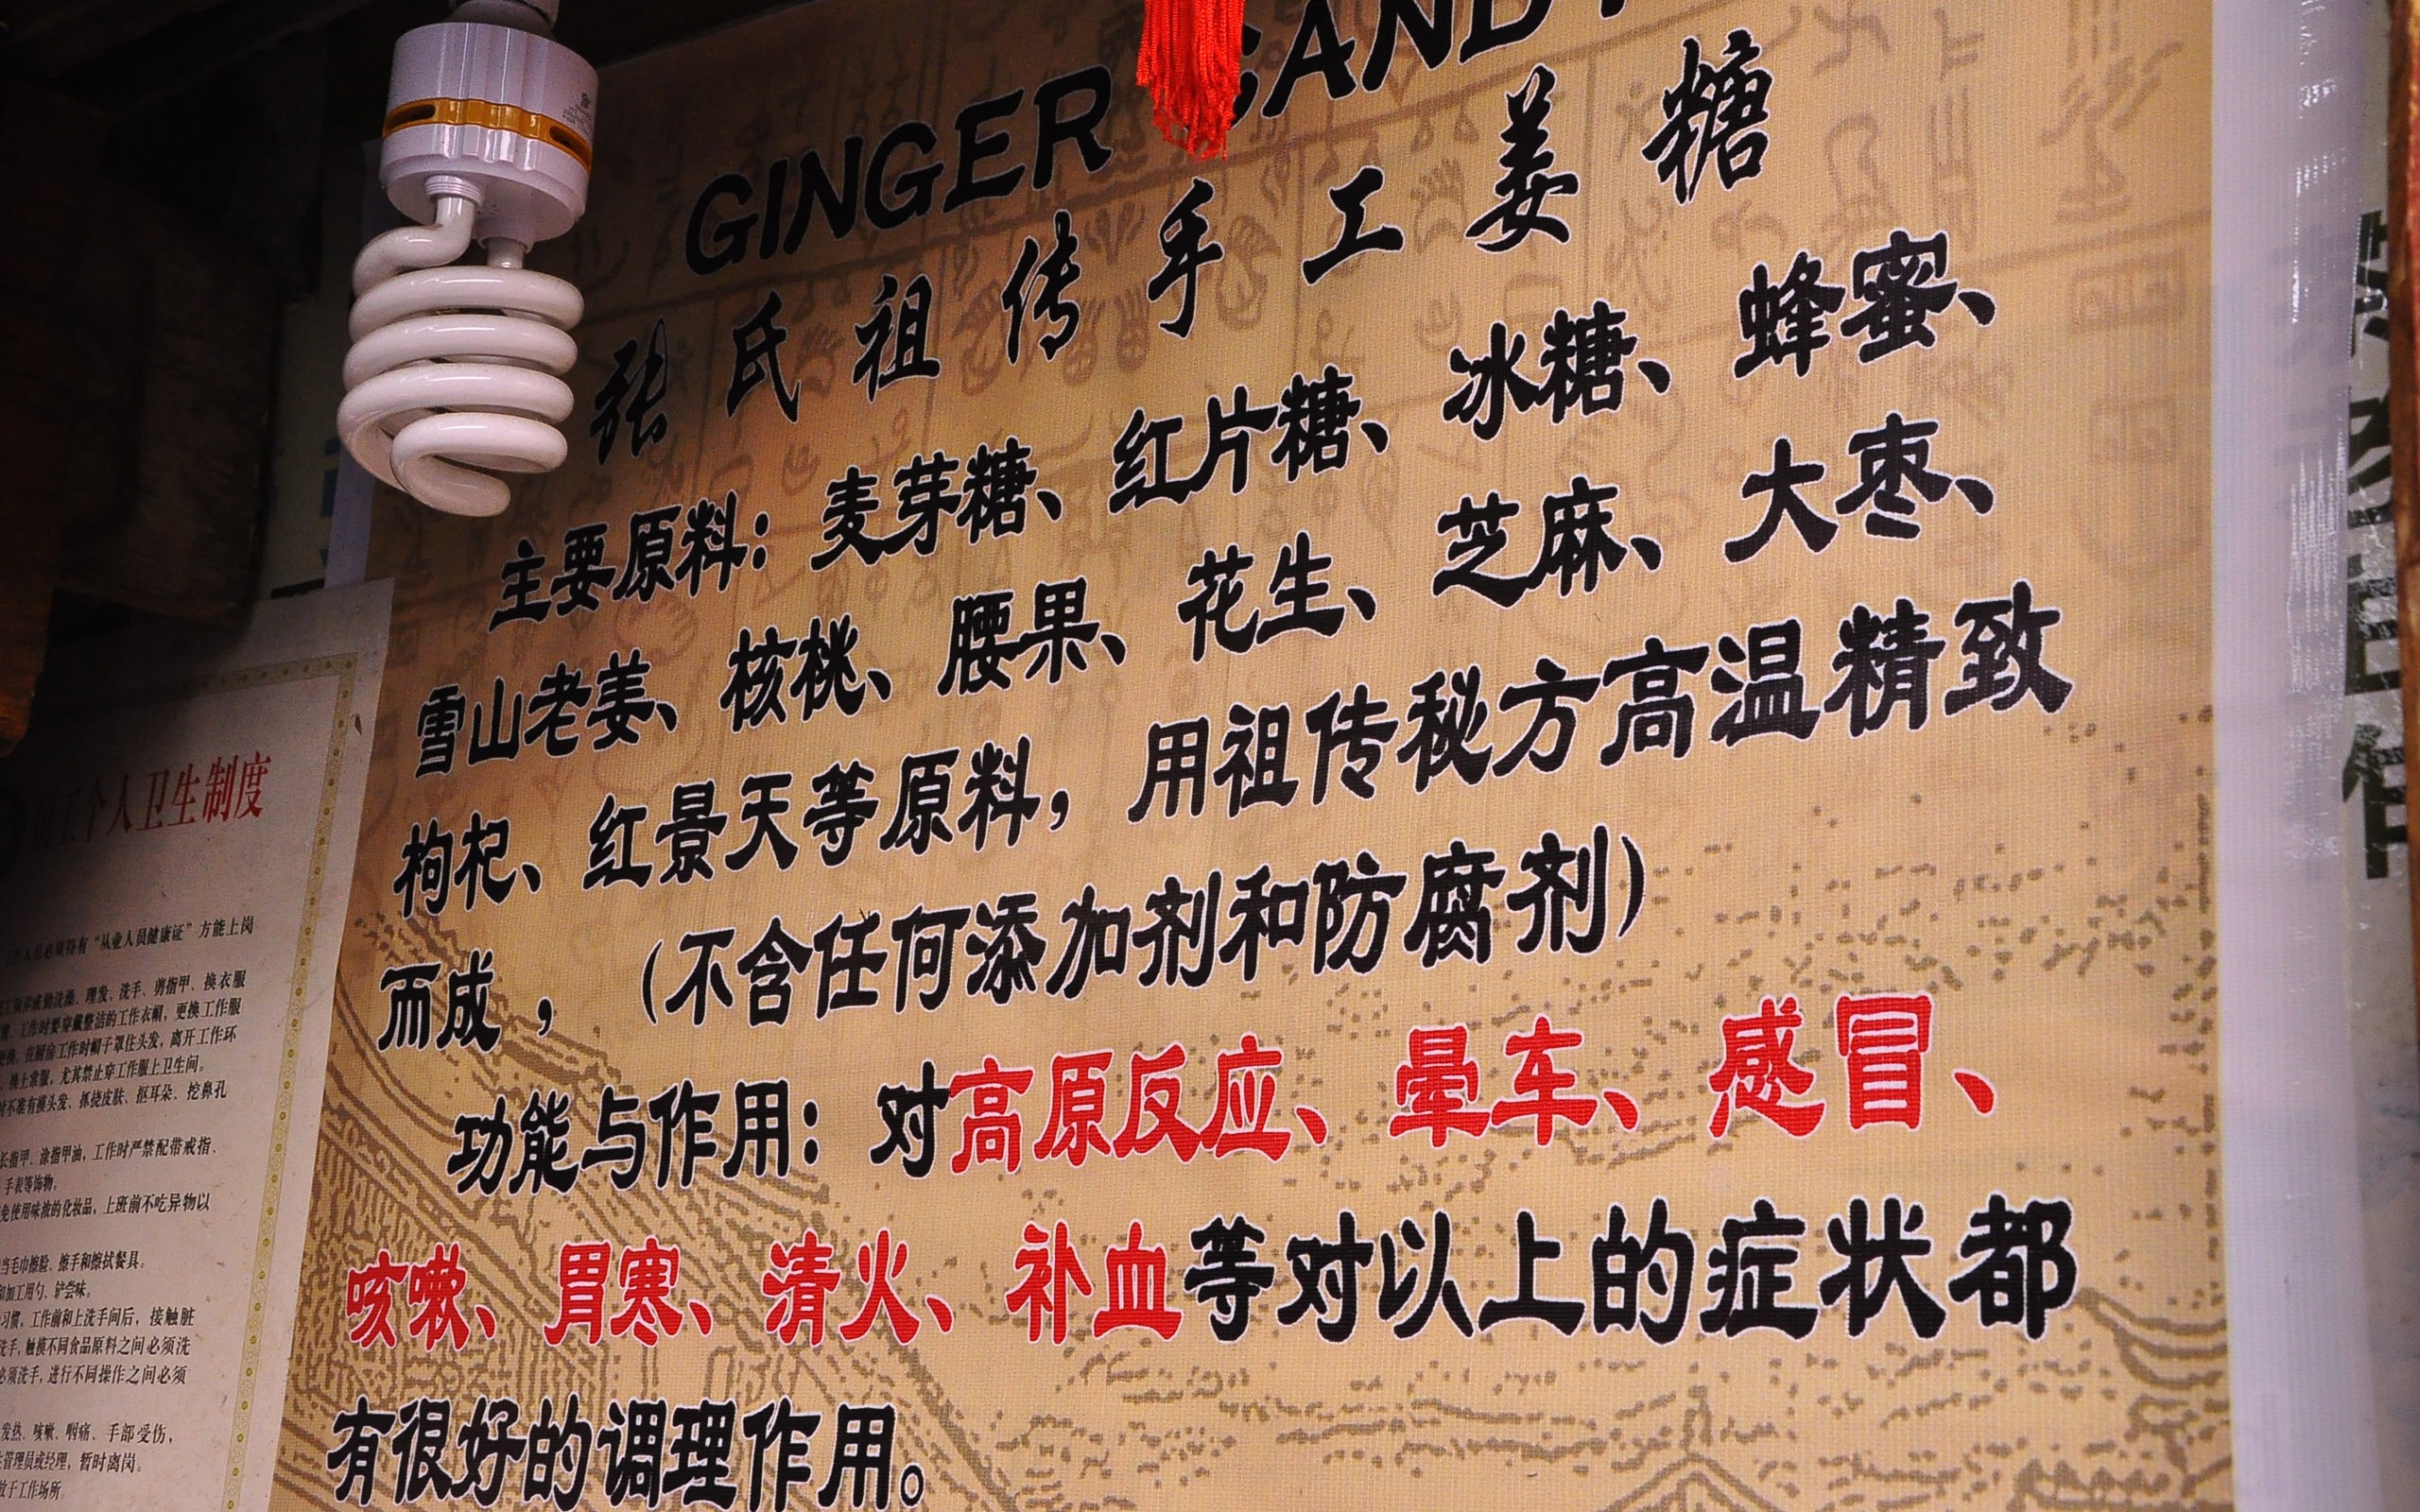 GINGER CANDY
张氏祖传手工姜糖
主要原料：麦芽糖、红片糖、冰糖、蜂蜜、
雪山老姜、核桃、腰果、花生、芝麻、大枣、
枸杞、红景天等原料，用祖传秘方高温精致
而成，（不含任何添加剂和防腐剂）
功能与作用：对高原反应、晕车、感冒、
咳嗽、胃寒、清火、补血等对以上的症状都
有很好的调理作用。
个人卫生制度
有“从业人员健康证”方能上岗
洗澡、理发、洗手、剪指甲、换衣服
工作时要穿戴整洁的工作衣帽，更换工作服
在厨房工作时帽子罩住头发，离开工作环
换上常服，尤其禁止穿工作服上卫生间。
时不准有摸头发、抓挠皮肤、抠耳朵、挖鼻孔
长指甲、涂指甲油，工作时严禁配带戒指、
手表等饰物。
免使用味浓的化妆品，上班前不吃异物以
当毛巾擦脸、擦手和擦拭餐具。
加工用勺、铲尝味。
习惯，工作前和上洗手间后，接触脏
洗手，触摸不同食品原料之间必须洗
必须洗手，进行不同操作之间必须
发热、咳嗽、咽痛、手部受伤，
管理员或经理，暂时离岗。
于工作场所